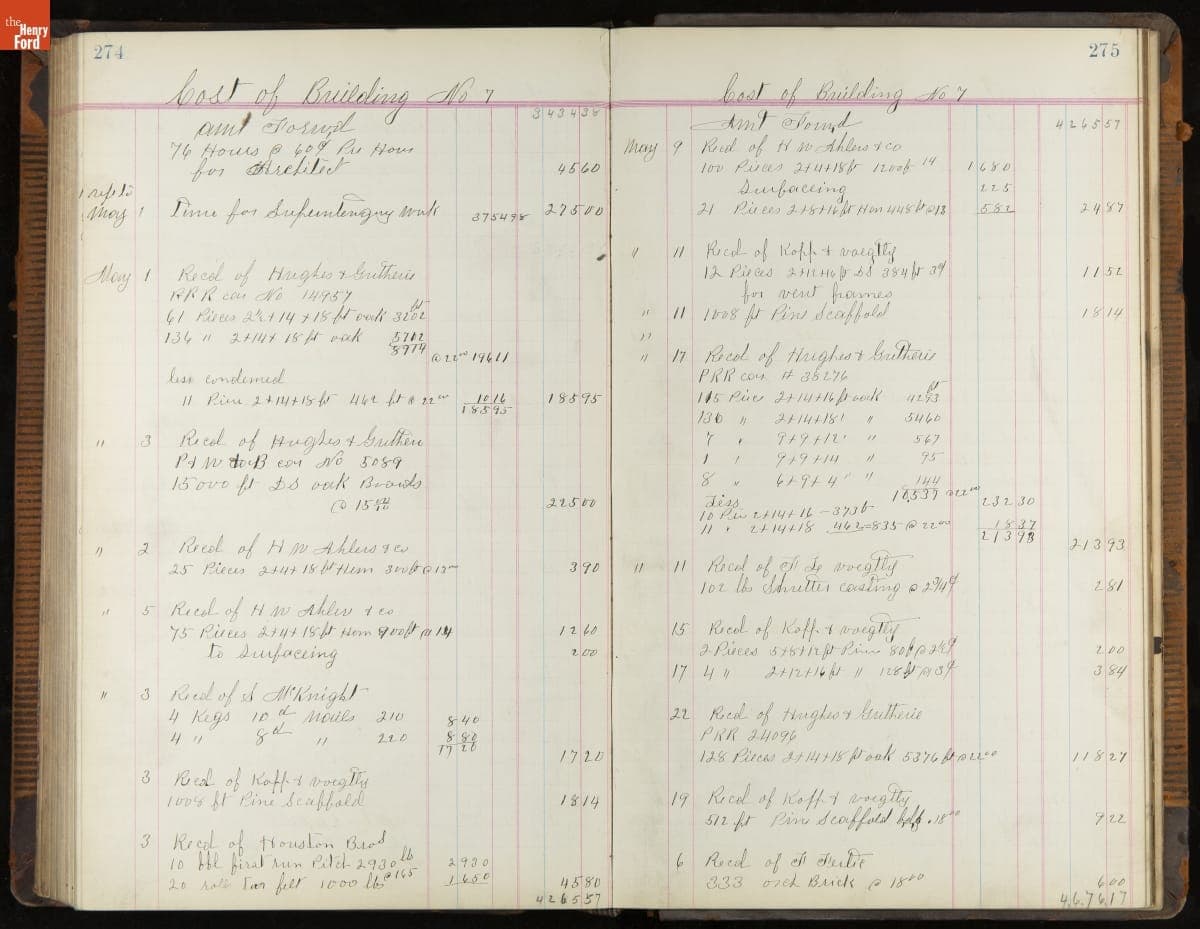 the
Henry
Ford
274
Cost of Building No 7
Amt Forwd 343438
76 Hours @ 60¢ Per Hour
for Architect 4560
May 1 Time for Superintending Work 375498 27500
May 1 Recd of Hughes & Gutherie
PRR car No 14957
61 Pieces 2½+14+18 ft oak 3202 ft
136 " 2+14+18 ft oak 5712
8914 @ 22⁰⁰ 19611
less condemned
11 Pine 2+14+18 ft 462 ft @ 22⁰⁰ 1016 18595
18595
" 3 Recd of Hughes & Guthen
P & W car No 5089
15000 ft DS oak Boards
@ 15⁰⁰ 22500
" 2 Recd of H W Ahlers & co
25 Pieces 2+4+18 ft Hem 300 ft @ 13⁰⁰ 390
" 5 Recd of H W Ahler & co
75 Pieces 2+4+18 ft Hem 900 ft @ 14 1260
to Surfaceing 200
" 3 Recd of S McKnight
4 Kegs 10d Nails 210 840
4 " 8d " 220 880
1720 1720
3 Recd of Kopp & voegtly
1008 ft Pine Scaffold 1814
3 Recd of Houston Bros
10 bbl first run Pitch 2930 lb 2930
20 roll Tar felt 1000 lbs @ 165 1650 4580
426557
275
Cost of Building No 7
Amt Forwd 426557
May 9 Recd of H W Ahlers & co
100 Pieces 2+4+18 ft 1200 ft 14 1680
Surfaceing 225
21 Pieces 2+8+16 ft Hem 448 ft @ 13 582 2487
" 11 Recd of Kopp & voegtly
12 Pieces 2+12+16 ft DS 384 ft 3¢ 1152
for vent frames
" 11 1008 ft Pine Scaffold 1814
"
" 17 Recd of Hughes & Gutherie
PRR car # 38276
115 Pices 2+14+16 ft oak 4293 ft
130 " 2+14+18' " 5460
7 " 9+9+12' " 567
1 " 9+9+14 " 95
8 " 6+9+4' " 144
10537 @ 22⁰⁰ 23230
Less
10 Pices 2+14+16 – 373 ft
11 " 2+14+18 462 = 835 @ 22⁰⁰ 1837
21393 21393
" 11 Recd of voegtly
102 lbs Shutter casting @ 2¾¢ 281
15 Recd of Kopp & voegtly
2 Pieces 5+8+12 ft Pine 80 ft @ 2½¢ 200
17 4 " 2+12+16 ft " 128 ft @ 3¢ 384
22 Recd of Hughes & Gutherie
PRR 24096
128 Pieces 2+14+18 ft oak 5376 ft @ 22⁰⁰ 11827
19 Recd of Kopp & voegtly
512 ft Pine Scaffold 18⁰⁰ 922
6 Recd of
333 Brick @ 18⁰⁰ 600
467617